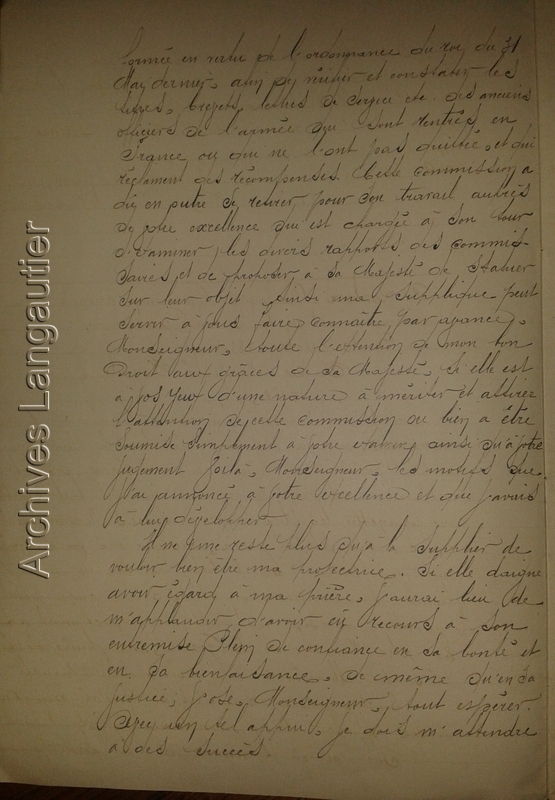 formée en vertu de l'ordonnance du roy du 31
May dernier, afin de vérifier et constater les
titres, brevets, lettres de service etc. des anciens
officiers de l'armée qui sont rentrés en
France ou qui ne l'ont pas quittée, et du
règlement des récompenses. Cette commission a
dû en outre se retirer pour son travail auprès
de votre excellence qui est chargée à son tour
d'examiner les divers rapports des commis-
saires et de proposer à Sa Majesté de statuer
sur leur objet, ainsi ma supplique peut
servir à vous faire connaître par avance,
Monseigneur, toute l'extention de mon bon
Droit aux grâces de Sa Majesté. Si elle est
à vos yeux d'une nature à mériter et attirer
l'attention de cette commission ou bien a être
soumise simplement à votre examen, ainsi qu'à votre
jugement. Voilà, Monseigneur, les motifs que
j'ai annoncés à votre excellence et que j'avais
à luy développer.
Il ne me reste plus qu'à la supplier de
vouloir bien être ma protectrice. Si elle daigne
avoir égard à ma prière, j'aurai lieu de
m'applaudir d'avoir eu recours à son
entremise. Plein de confiance en sa bonté et
en sa bienfaisance, de même qu'en sa
justice, j'ose, Monseigneur, tout espérer.
Avec un tel appui, je dois m'attendre
à des succès.
Archives Langautier